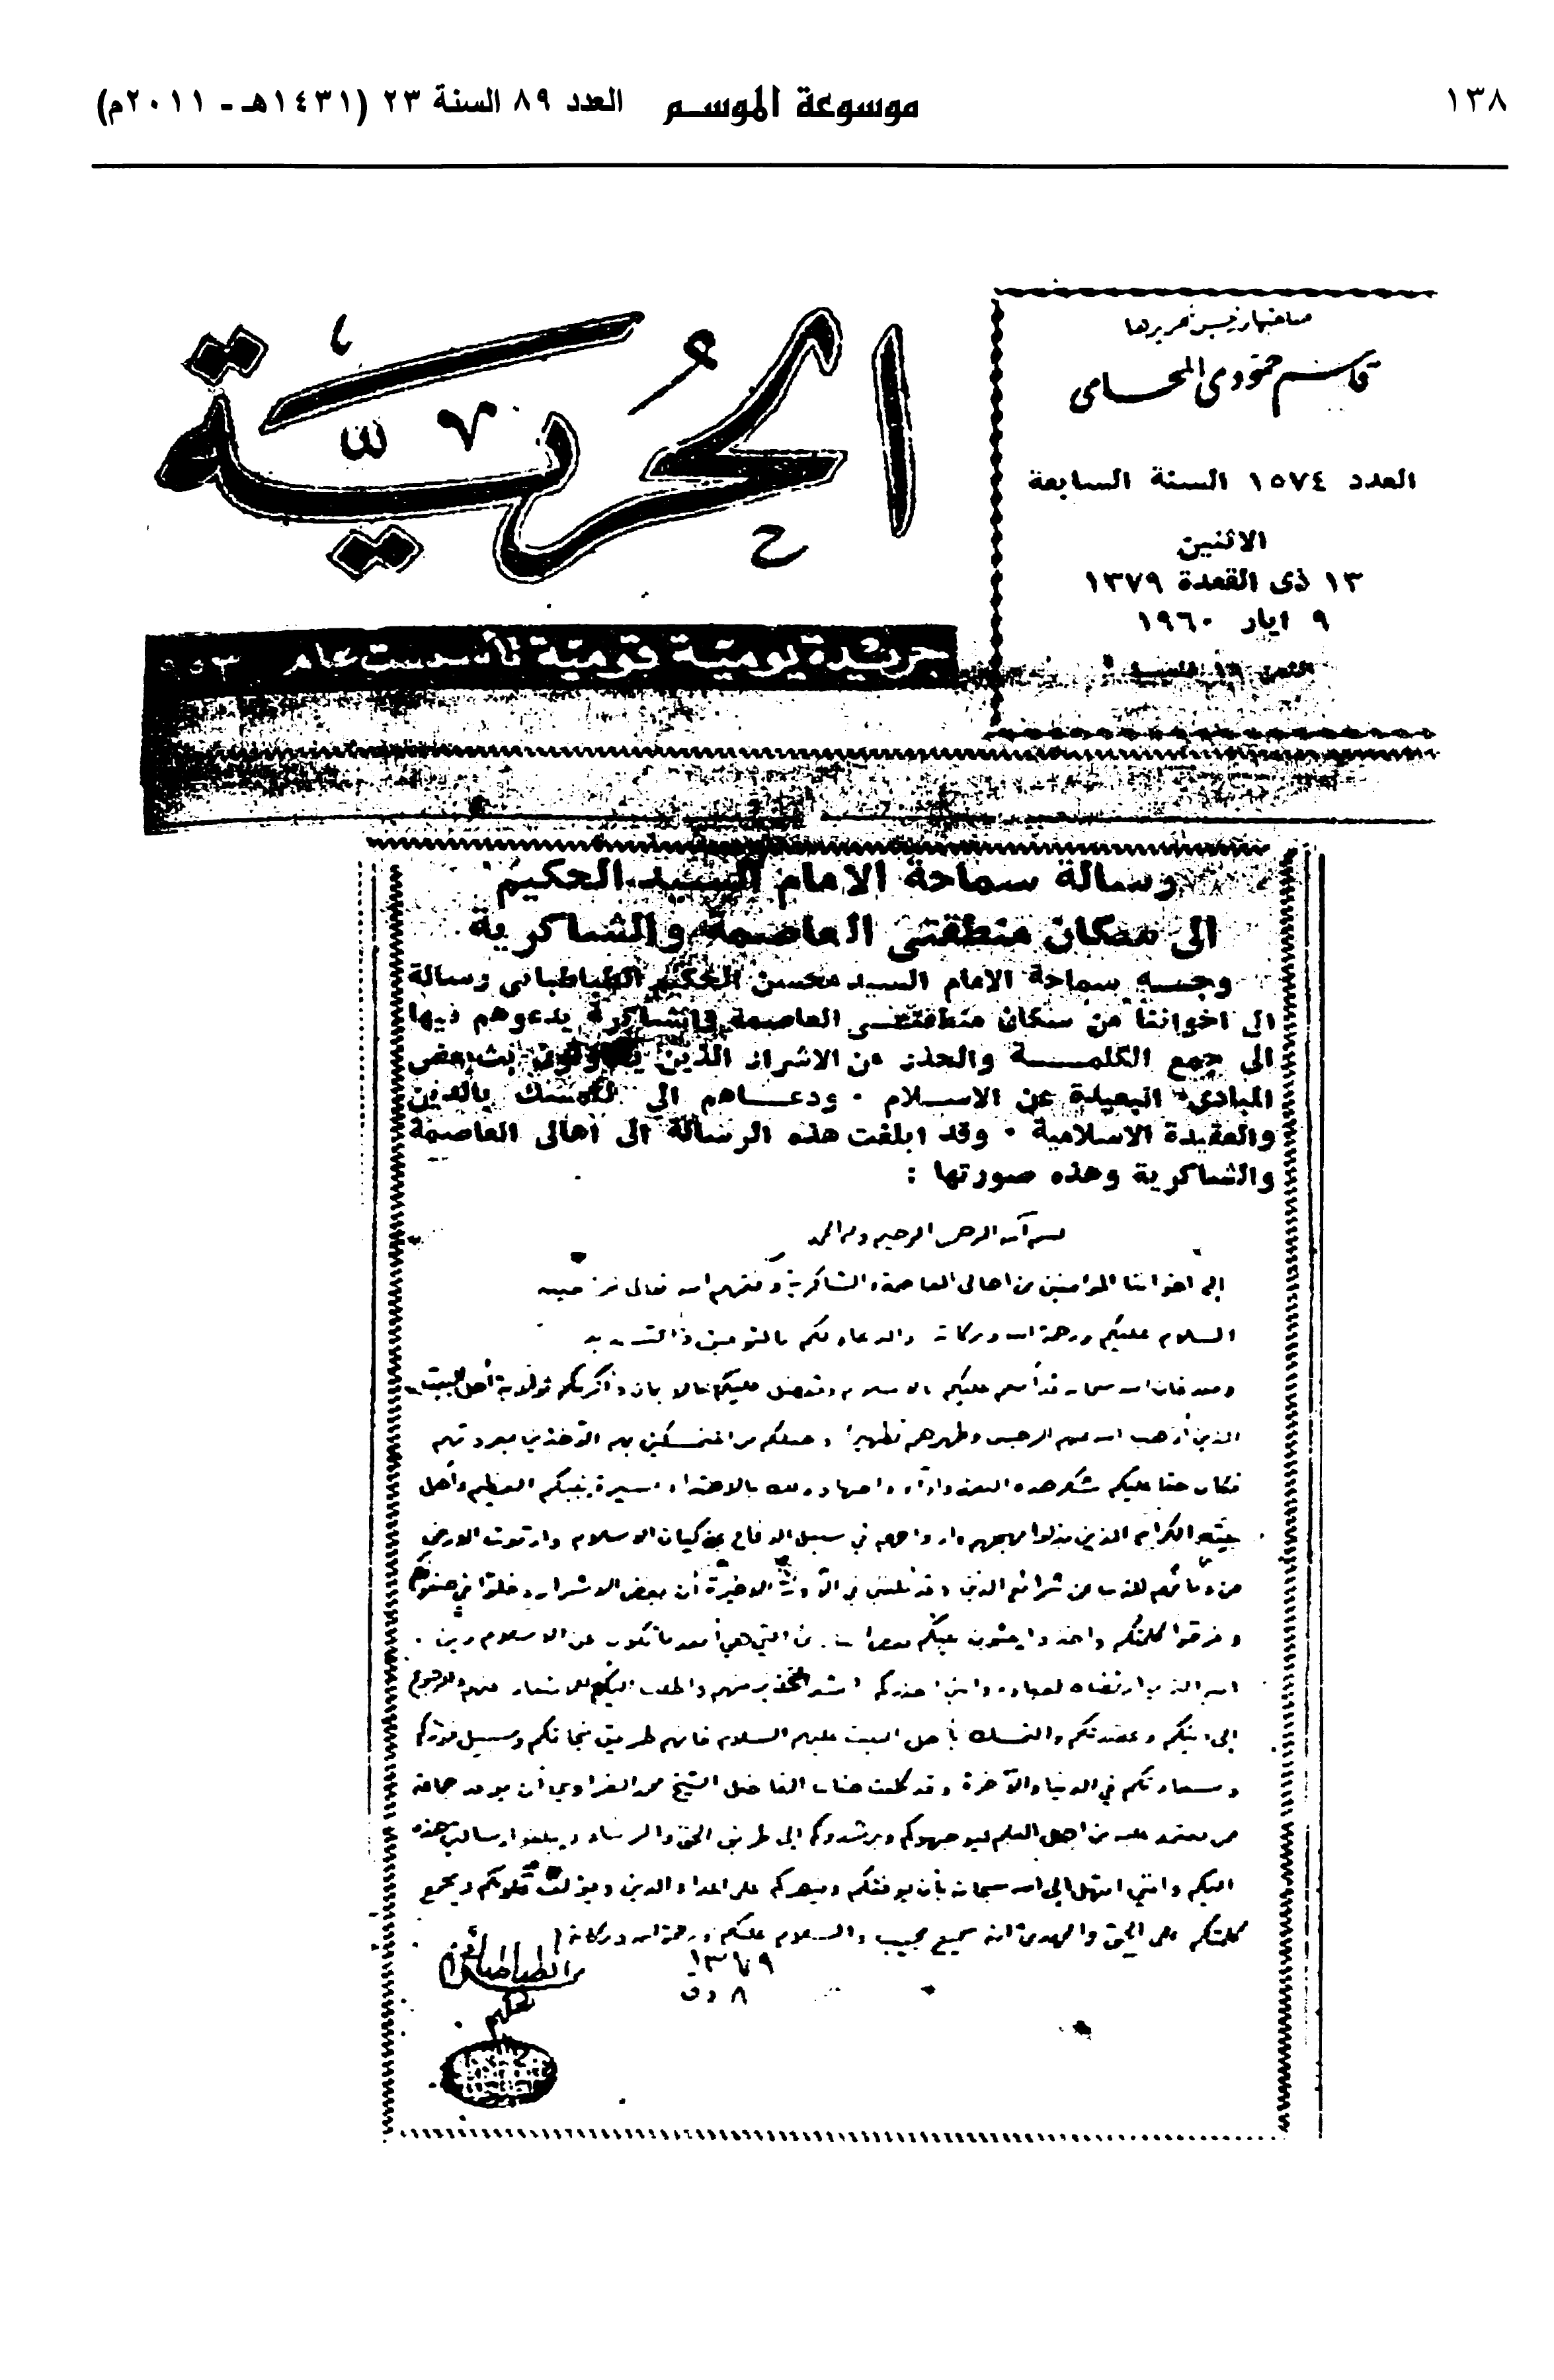 ١٣٨
موسوعة الموسم العدد ٨٩ السنة ٢٣ (١٤٣١هـ - ٢٠١١م)
صاحبها ورئيس تحريرها
قاسم حمودي المحامي
العدد ١٥٧٤ السنة السابعة
الاثنين
١٣ ذى القعدة ١٣٧٩
٩ ايار ١٩٦٠
الحرية
جريدة يومية قومية تأسست عام
رسالة سماحة الامام السيد الحكيم
الى سكان منطقتى العاصمة والشاكرية
وجه سماحة الامام السيد محسن الحكيم الطباطبائى رسالة
الى اخواننا من سكان منطقتى العاصمة والشاكرية يدعوهم فيها
الى جمع الكلمة والحذر من الاشرار الذين يحاولون بث بعض
المبادىء البعيدة عن الاسلام ٠ ودعاهم الى التمسك بالدين
والعقيدة الاسلامية ٠ وقد ابلغت هذه الرسالة الى اهالى العاصمة
والشاكرية وهذه صورتها :
بسم الله الرحمن الرحيم وله الحمد
إلى اخواننا المؤمنين من اهالى العاصمة والشاكرية وفقهم الله تعالى
السلام عليكم ورحمة الله وبركاته والدعاء لكم بالتوفيق والتسديد
وبعد فان الله سبحانه قد أنعم عليكم بالاسلام وتفضل عليكم بالايمان وأكرمكم بولاية أهل البيت
الذين أذهب الله عنهم الرجس وطهرهم تطهيرا وجعلكم من المتمسكين بهم
فكان حقا عليكم شكر هذه النعمة بالاهتداء بسيرة نبيكم العظيم وأهل
بيته الكرام الذين بذلوا مهجهم وارواحهم في سبيل الدفاع عن كيان الاسلام وارتوت الارض
من دمائهم للذب عن شرائع الدين وقد بلغنى في الآونة الاخيرة أن بعض الاشرار دخلوا في صفوفكم
وفرقوا كلمتكم التي هي أبعد ما تكون عن الاسلام دين
الله الذي ارتضاه لعباده وانني احذركم اشد التحذير منهم واطلب اليكم
إلى دينكم وعقيدتكم والتمسك بأهل البيت عليهم السلام فانهم طريق نجاتكم وسبيل فوزكم
وسعادتكم في الدنيا والآخرة وقد كلفت جناب الفاضل الشيخ محمد أن يوفد جماعة
ممن يعتمد عليه من اهل العلم ليوجهوكم ويرشدوكم إلى طريق الحق والرشاد ويبلغوا رسالتي هذه
اليكم وانني ابتهل إلى الله سبحانه بأن يوفقكم وينصركم على اعداء الدين ويؤلف قلوبكم ويجمع
كلمتكم على الحق والهدى انه سميع مجيب والسلام عليكم ورحمة الله وبركاته
١٣٧٩
الطباطبائي
٨ ذق
الحكيم